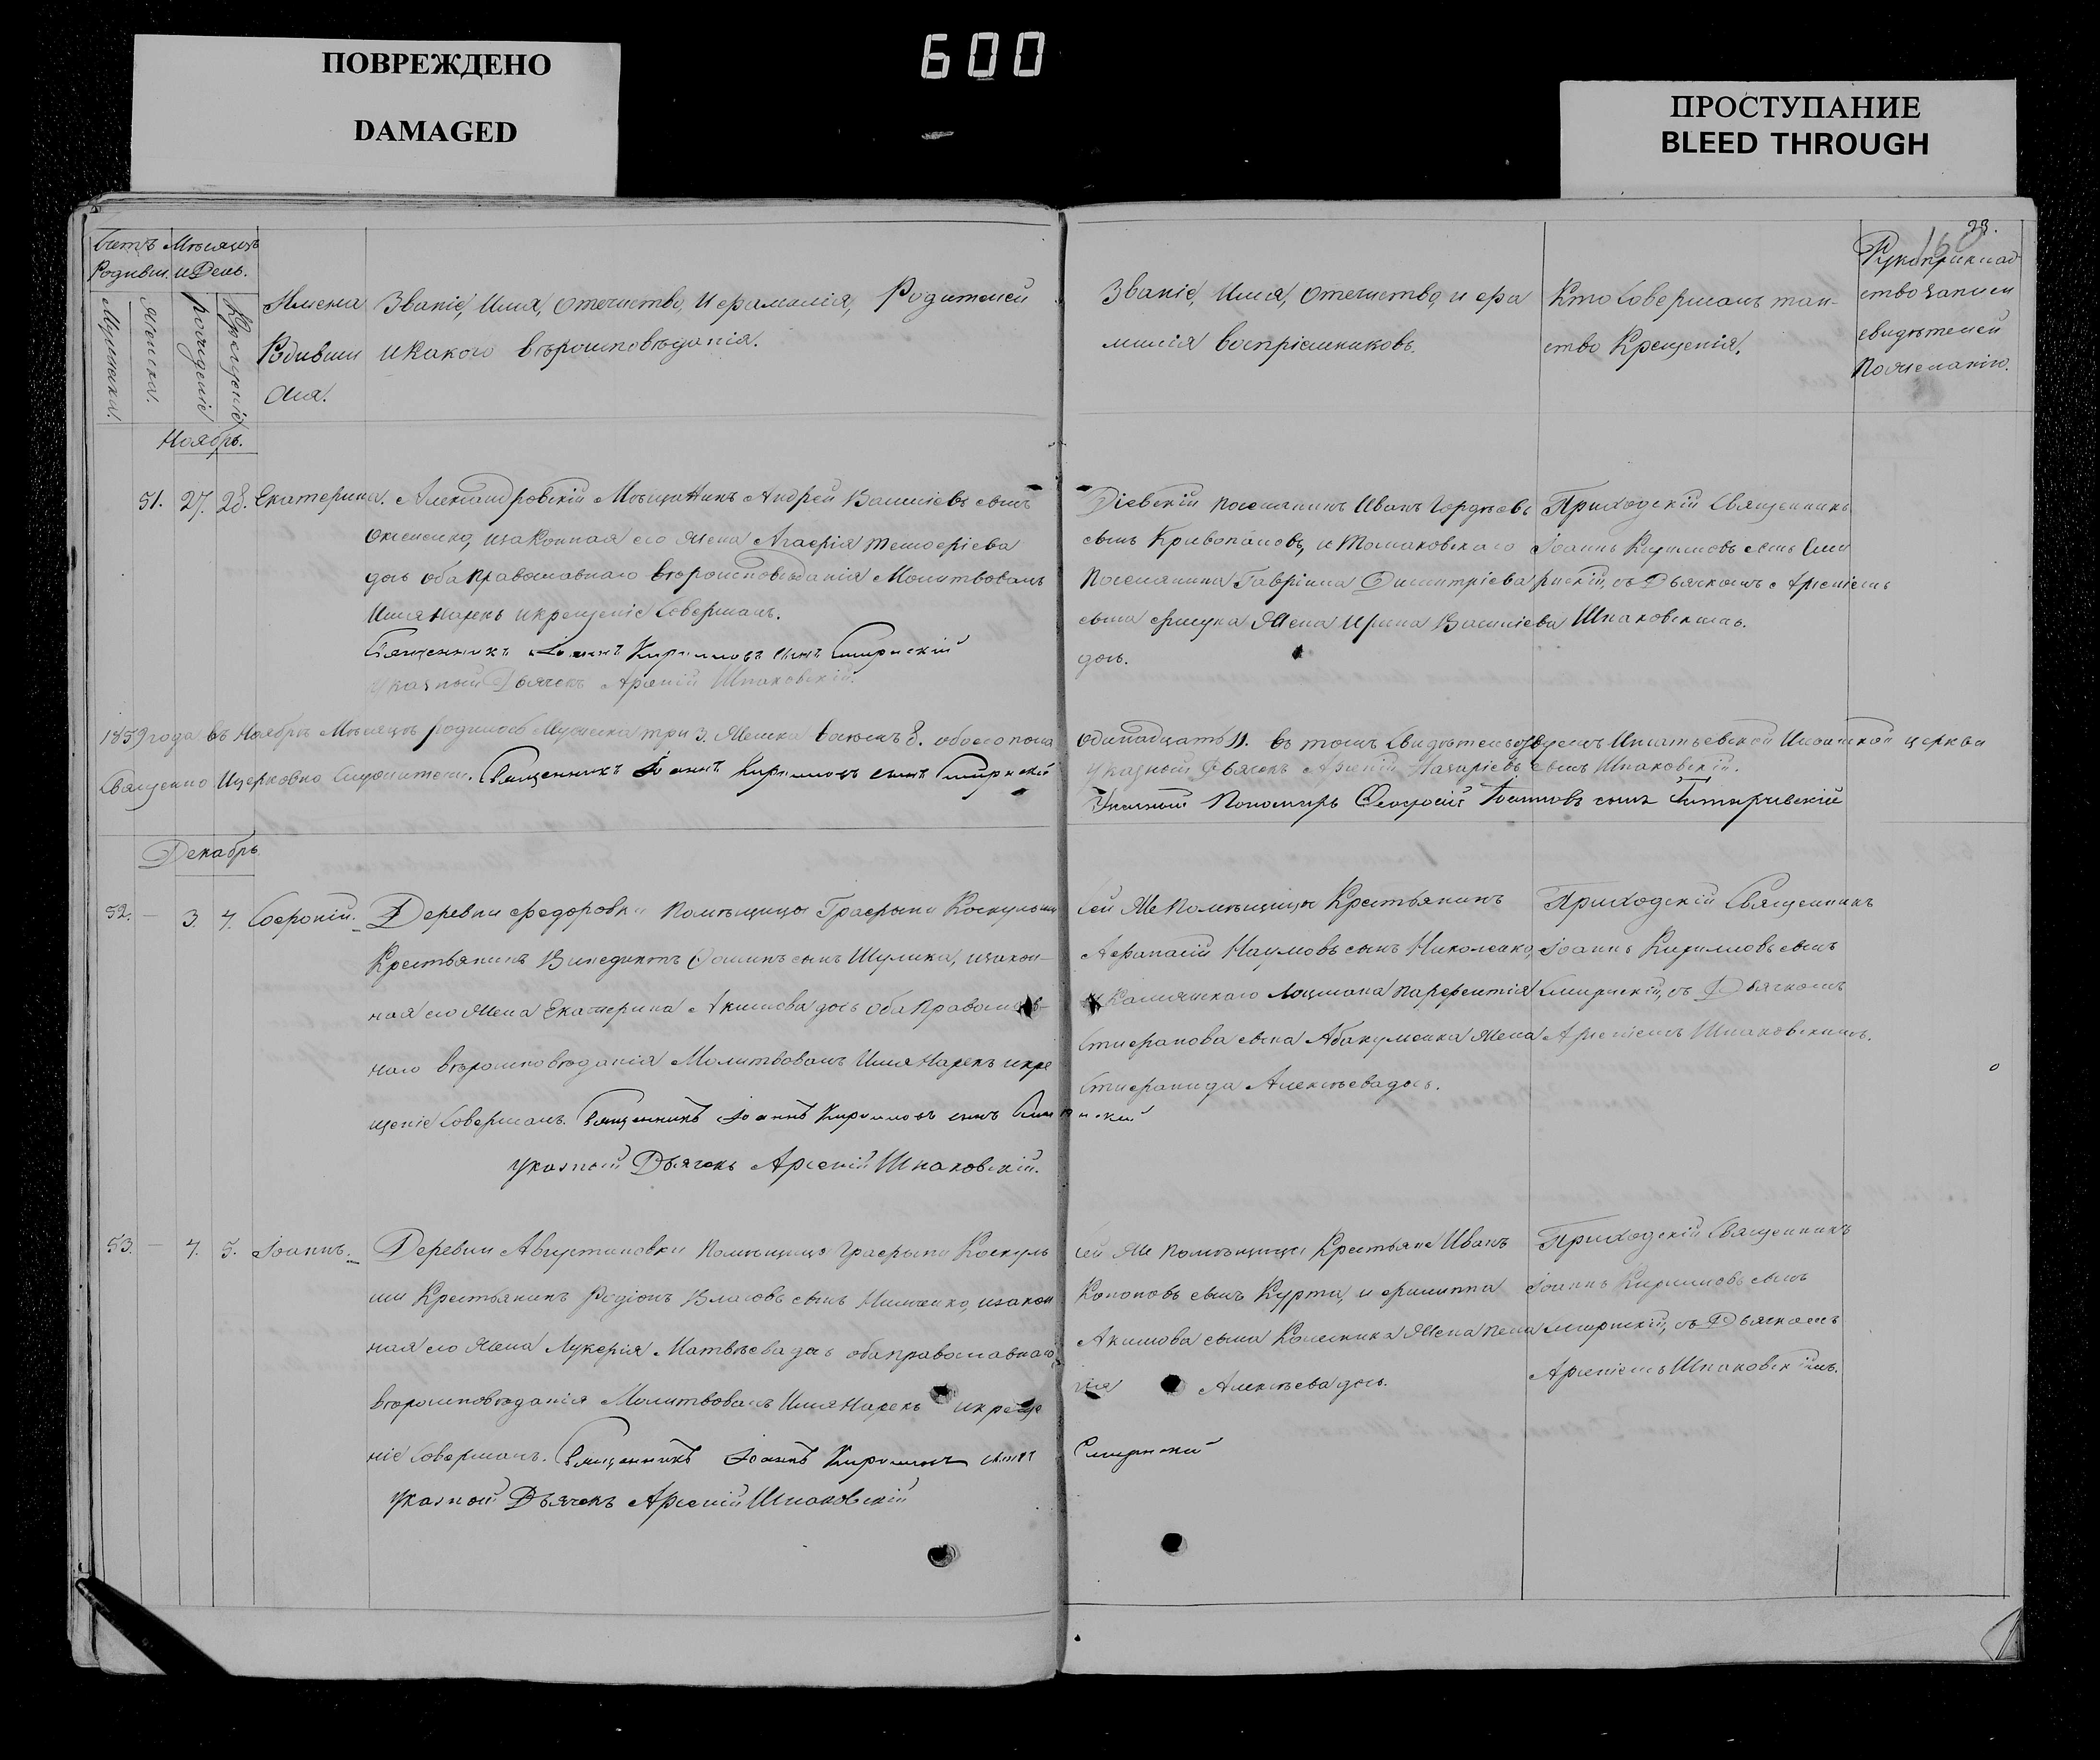 ПОВРЕЖДЕНО
DAMAGED
600
ПРОСТУПАНИЕ
BLEED THROUGH
Счетъ Родивш.
Мѣсяцъ и День.
Мужеска.
Женска.
рожденіе
Крещеніе
Имена
Родивши
ся.
Званіе, Имя, Отечиство, и фамилія, Родителей
и Какого вѣроисповѣданія.
Званіе, Имя, Отечиство, и фа
милія воспріемниковъ.
Кто Совершалъ таи-
ство Крещенія.
23.
160
Рукоприклад
ство Записи
свидѣтелей
По желанію.
Ноябрь.
51. 27. 28. Екатерина. Александровскій Мѣщанинъ Андрей Василіевъ сынъ
изаконная его жена Агафія Тимофѣева
дочь оба Православнаго вѣроисповѣданія Молитвовалъ
Имя Нарекъ и крещеніе Совершалъ.
Священникъ Іоаннъ Кирилловъ сынъ Смирнскій
Указный Дьячекъ Арсеній Шпаковскій.
Діевскій поселянинъ Иванъ Гордѣевъ
сынъ Кривопановъ, и Томаковскаго
Поселянина Гавріила Димитріева
сына жена Ирина Василіева
дочь.
Приходскій Священникъ
Іоаннъ Кирилловъ сынъ Сми
рнскій, съ Дьячкомъ Арсеніемъ
Шпаковскимъ.
1859 года въ Ноябрѣ Мѣсяцѣ родилось Мужеска три 3. Женска восемъ 8. обоего пола
одинадцать 11. въ томъ Свидѣтельствуемъ Игнатьевской церкви
Священно И церковно Служители. Священникъ Іоаннъ Кирилловъ сынъ Смирнскій
Указный Дьячекъ Арсеній Назаріевъ сынъ Шпаковскій.
Указный Пономарь Феодосій Іоанновъ сынъ
Декабрь
52. — 3. 4. Софроній. Деревни Федоровки Помѣщицы Графыни
Крестьянинъ Винедиктъ Осиповъ сынъ Шулика, изакон-
ная его Жена Екатерина Акимова дочь оба Православ-
наго вѣроисповѣданія Молитвовалъ Имя Нарекъ икре
щеніе Совершалъ. Священникъ Іоаннъ Кирилловъ сынъ Смирнскій
Указный Дьячекъ Арсеній Шпаковскій.
Сей же Помѣщицы Крестьянинъ
Афанасій Наумовъ сынъ Николенко,
и Камянскаго Лоцмана Парфентія
Стифанова сына Абакуменка Жена
Стифанида Алексѣева дочь.
Приходскій Священникъ
Іоаннъ Кирилловъ сынъ
Смирнскій, съ Дьячкомъ
Арсеніемъ Шпаковскимъ.
53. — 4. 5. Іоаннъ. Деревни Августиновки Помѣщицы Графыни
Крестьянинъ Родіонъ Власовъ сынъ изакон
ная его Жена Лукерія Матвѣева дочь оба православнаго
вѣроисповѣданія Молитвовалъ Имя Нарекъ икреще
ніе Совершалъ. Священникъ Іоаннъ Кирилловъ сынъ Смирнскій
Указной Дьячекъ Арсеній Шпаковскій
сей же Помѣщицы Крестьяне Иванъ
Кононовъ сынъ Курта, и филиппа
Акимова сына Колесника Жена Пела
гія Алексѣева дочь.
Приходскій Священникъ
Іоаннъ Кирилловъ сынъ
Смирнскій, съ Дьячкомъ
Арсеніемъ Шпаковскимъ.